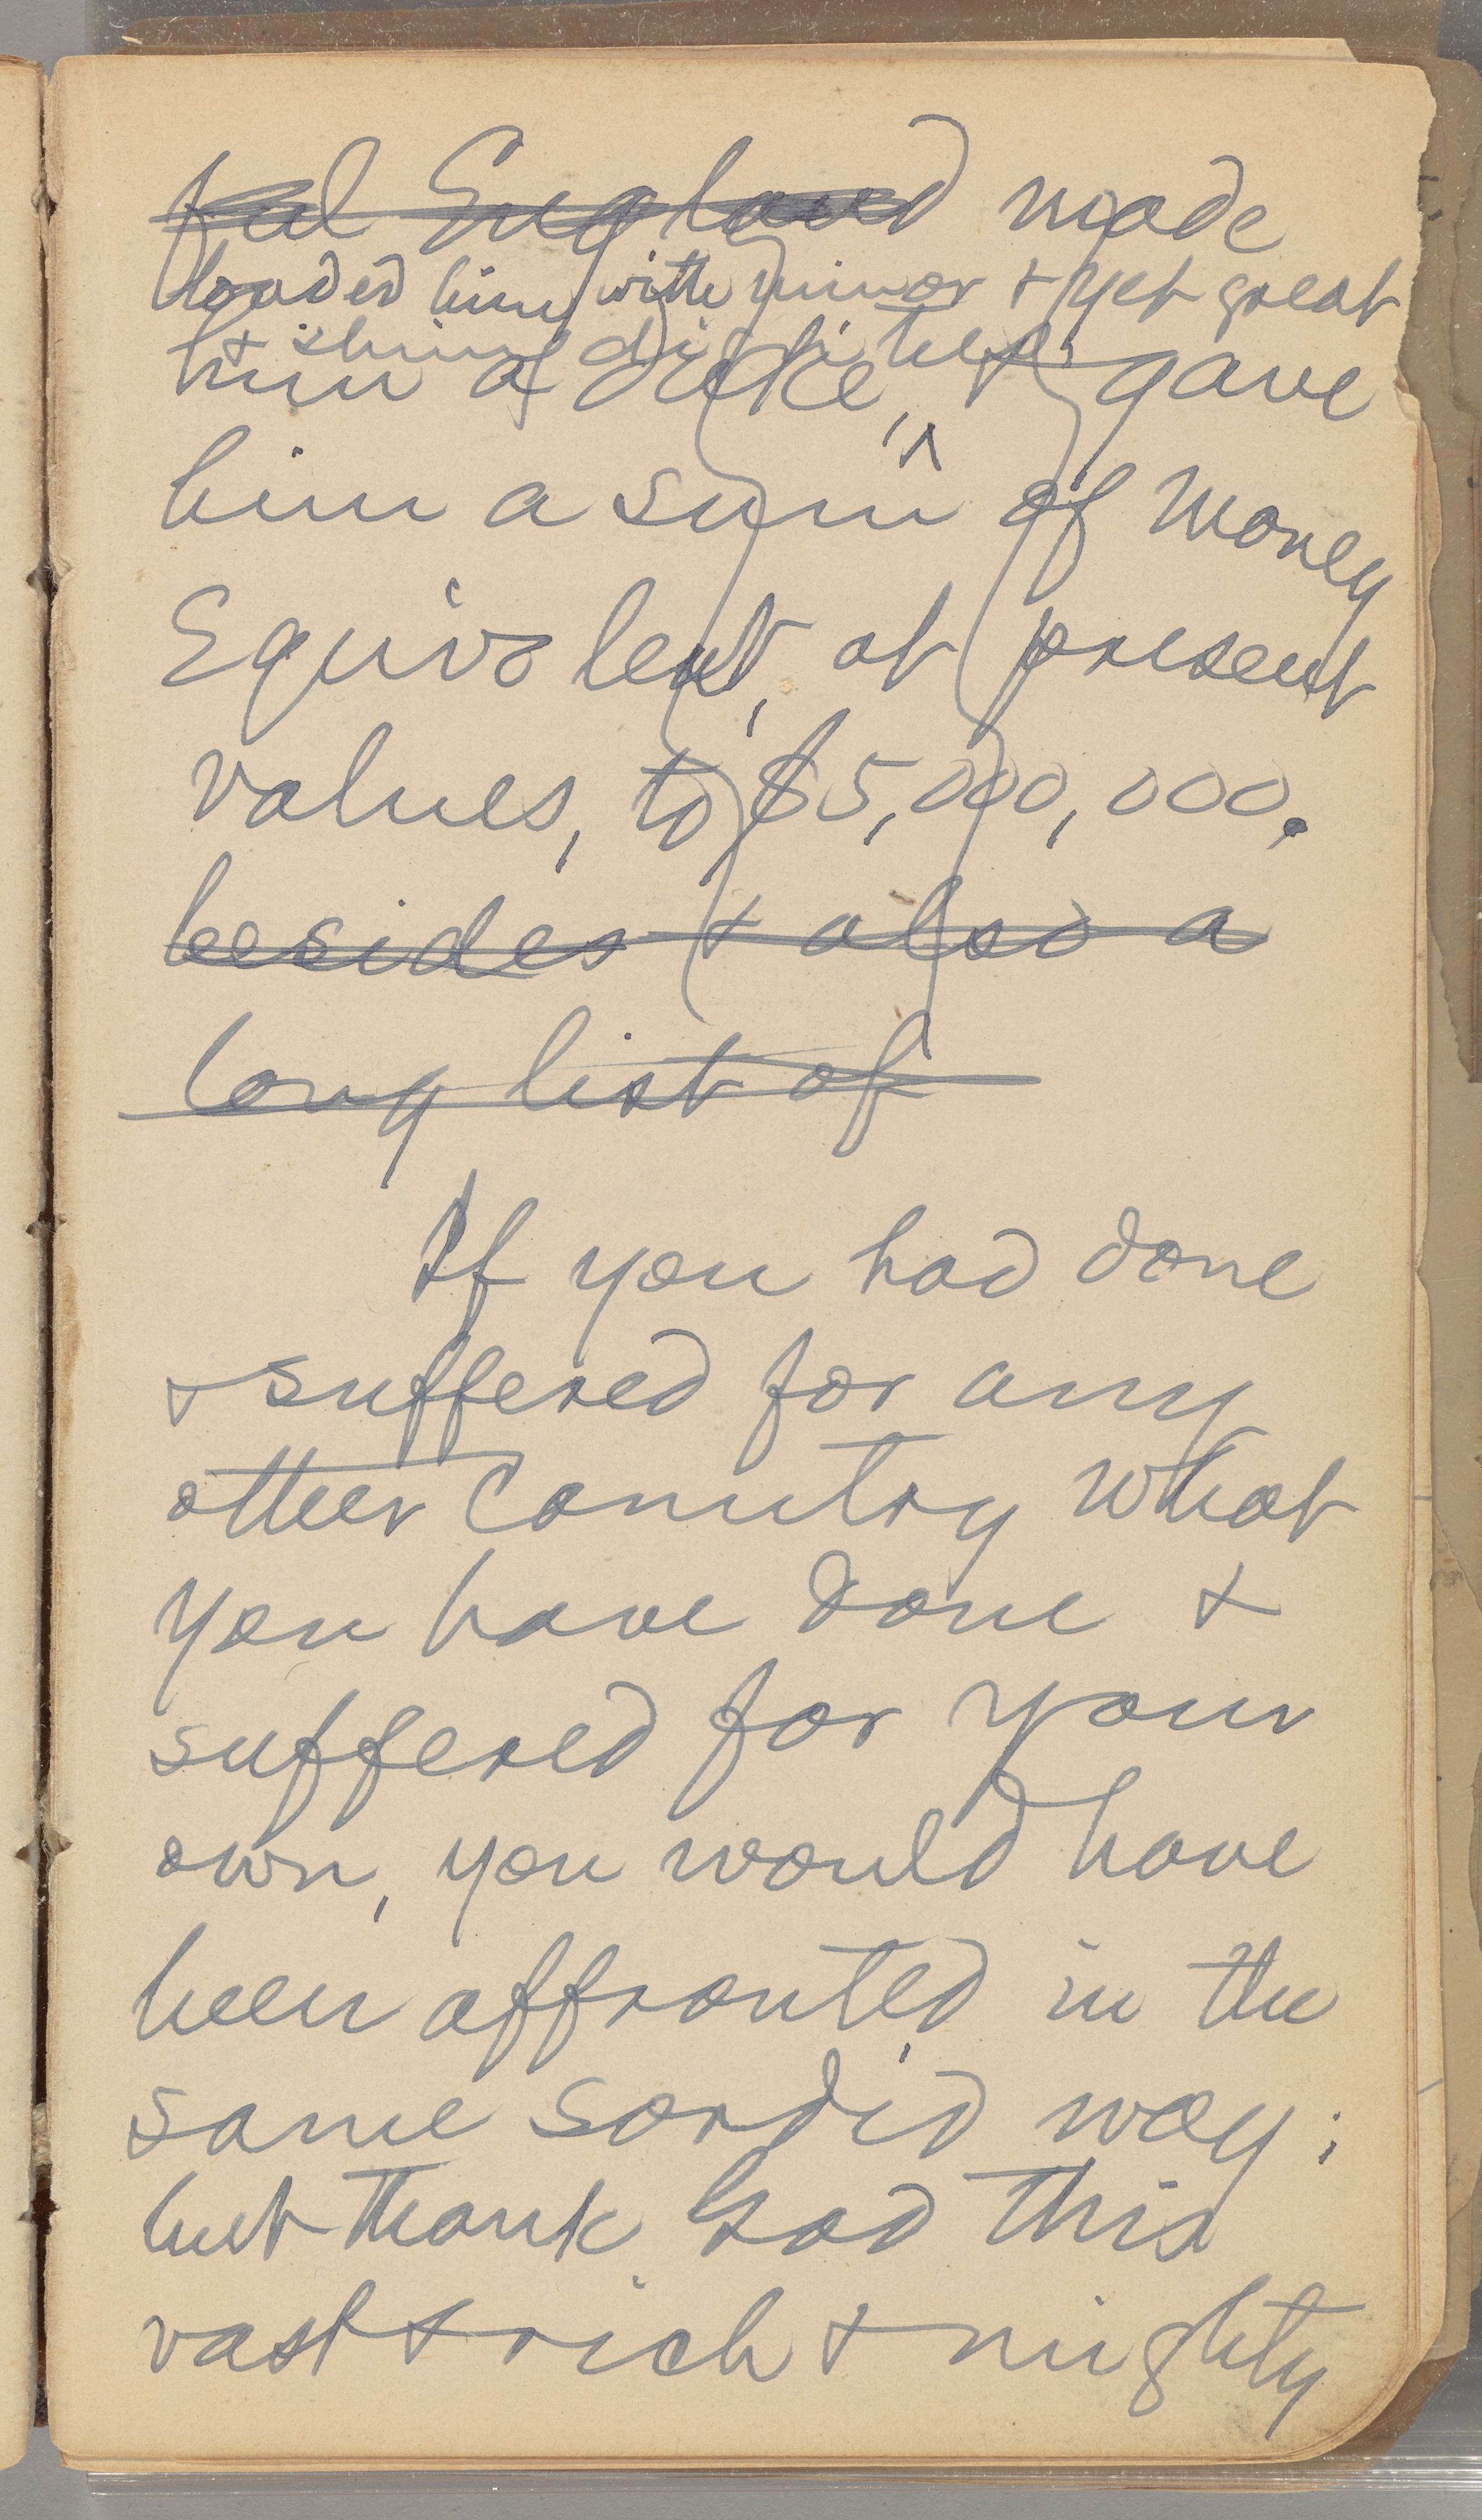 ful England made
loaded him with minor & yet great
& shining dignities,
him a duke, & gave
him a sum of money
Equivalent, at present
values, to $5,000,000.
besides & also a
long list of
If you had done
& suffered for any
other Country what
you have done &
suffered for your
own, you would have
been affronted in the
same sordid way;
but thank God this
vast & rich & mighty